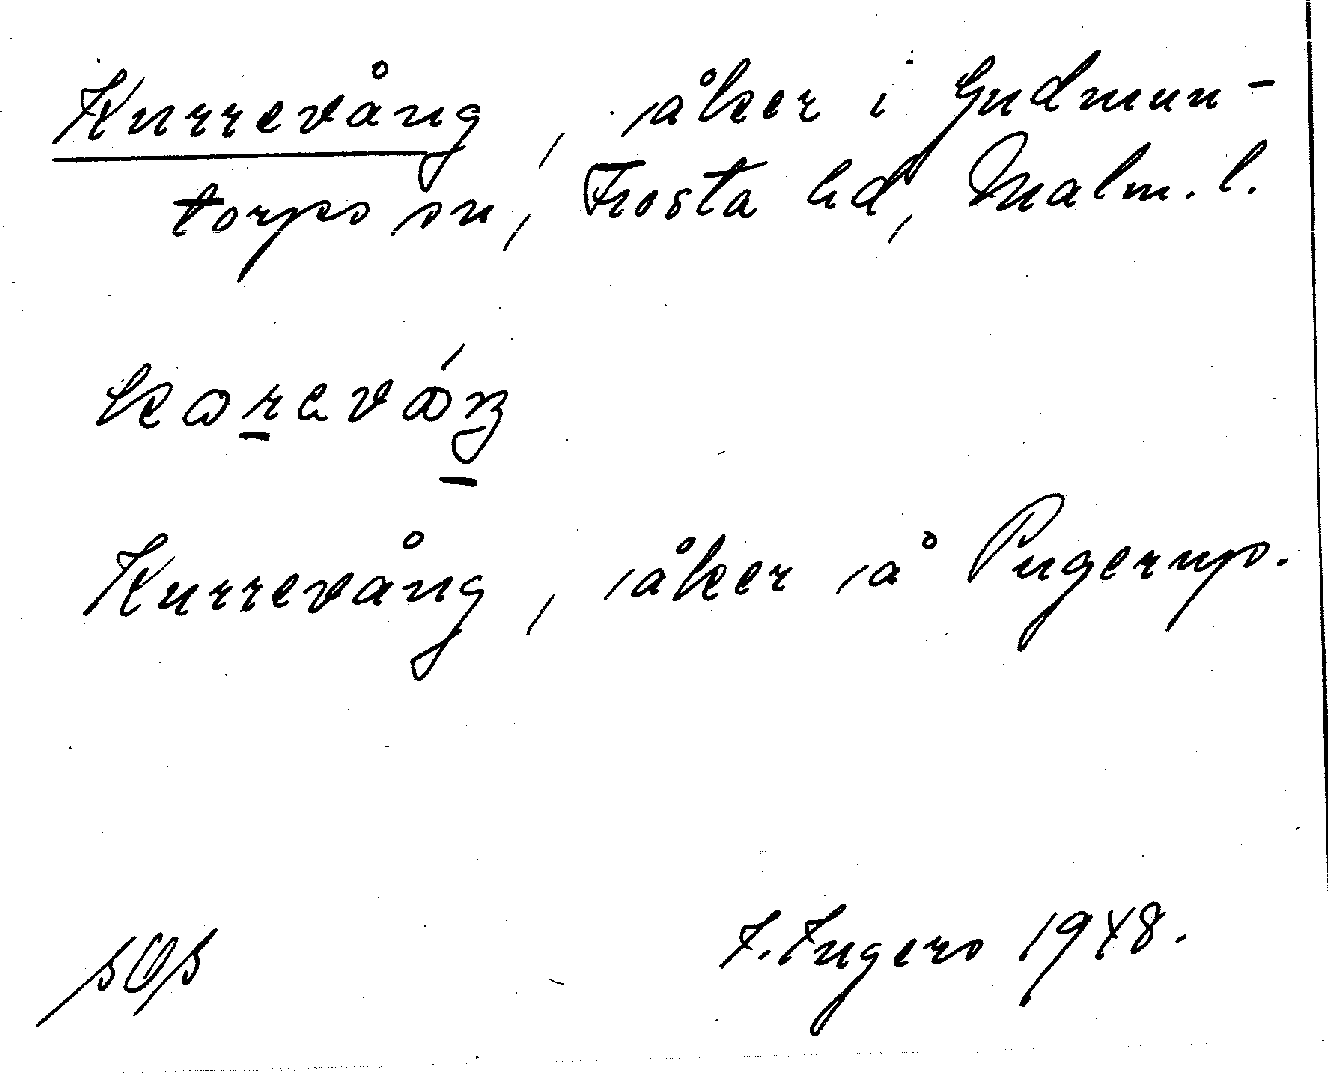 Kurrevång, åker i Gudmun-
torps sn, Frosta hd, Malm. l.
Kurrevång, åker å Pugerup.
I. Ingers 1948.